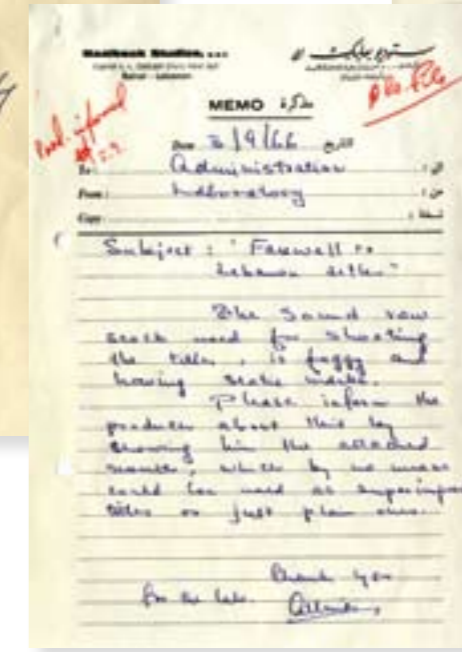 Baalbeck Studios, s.a.l.
Beirut - Lebanon
MEMO مذكرة
Date 3/9/66 التاريخ
To: Administration
From: Laboratory
Copy:
Subject: "Farewell to
Lebanon titles"
The Sound raw
stock used for shooting
the titles, is foggy and
having static marks.
Please inform the
producer about this by
showing him the attached
sample, which by no means
could be used as superimposed
titles or just plain ones.
Thank you
For the Lab.